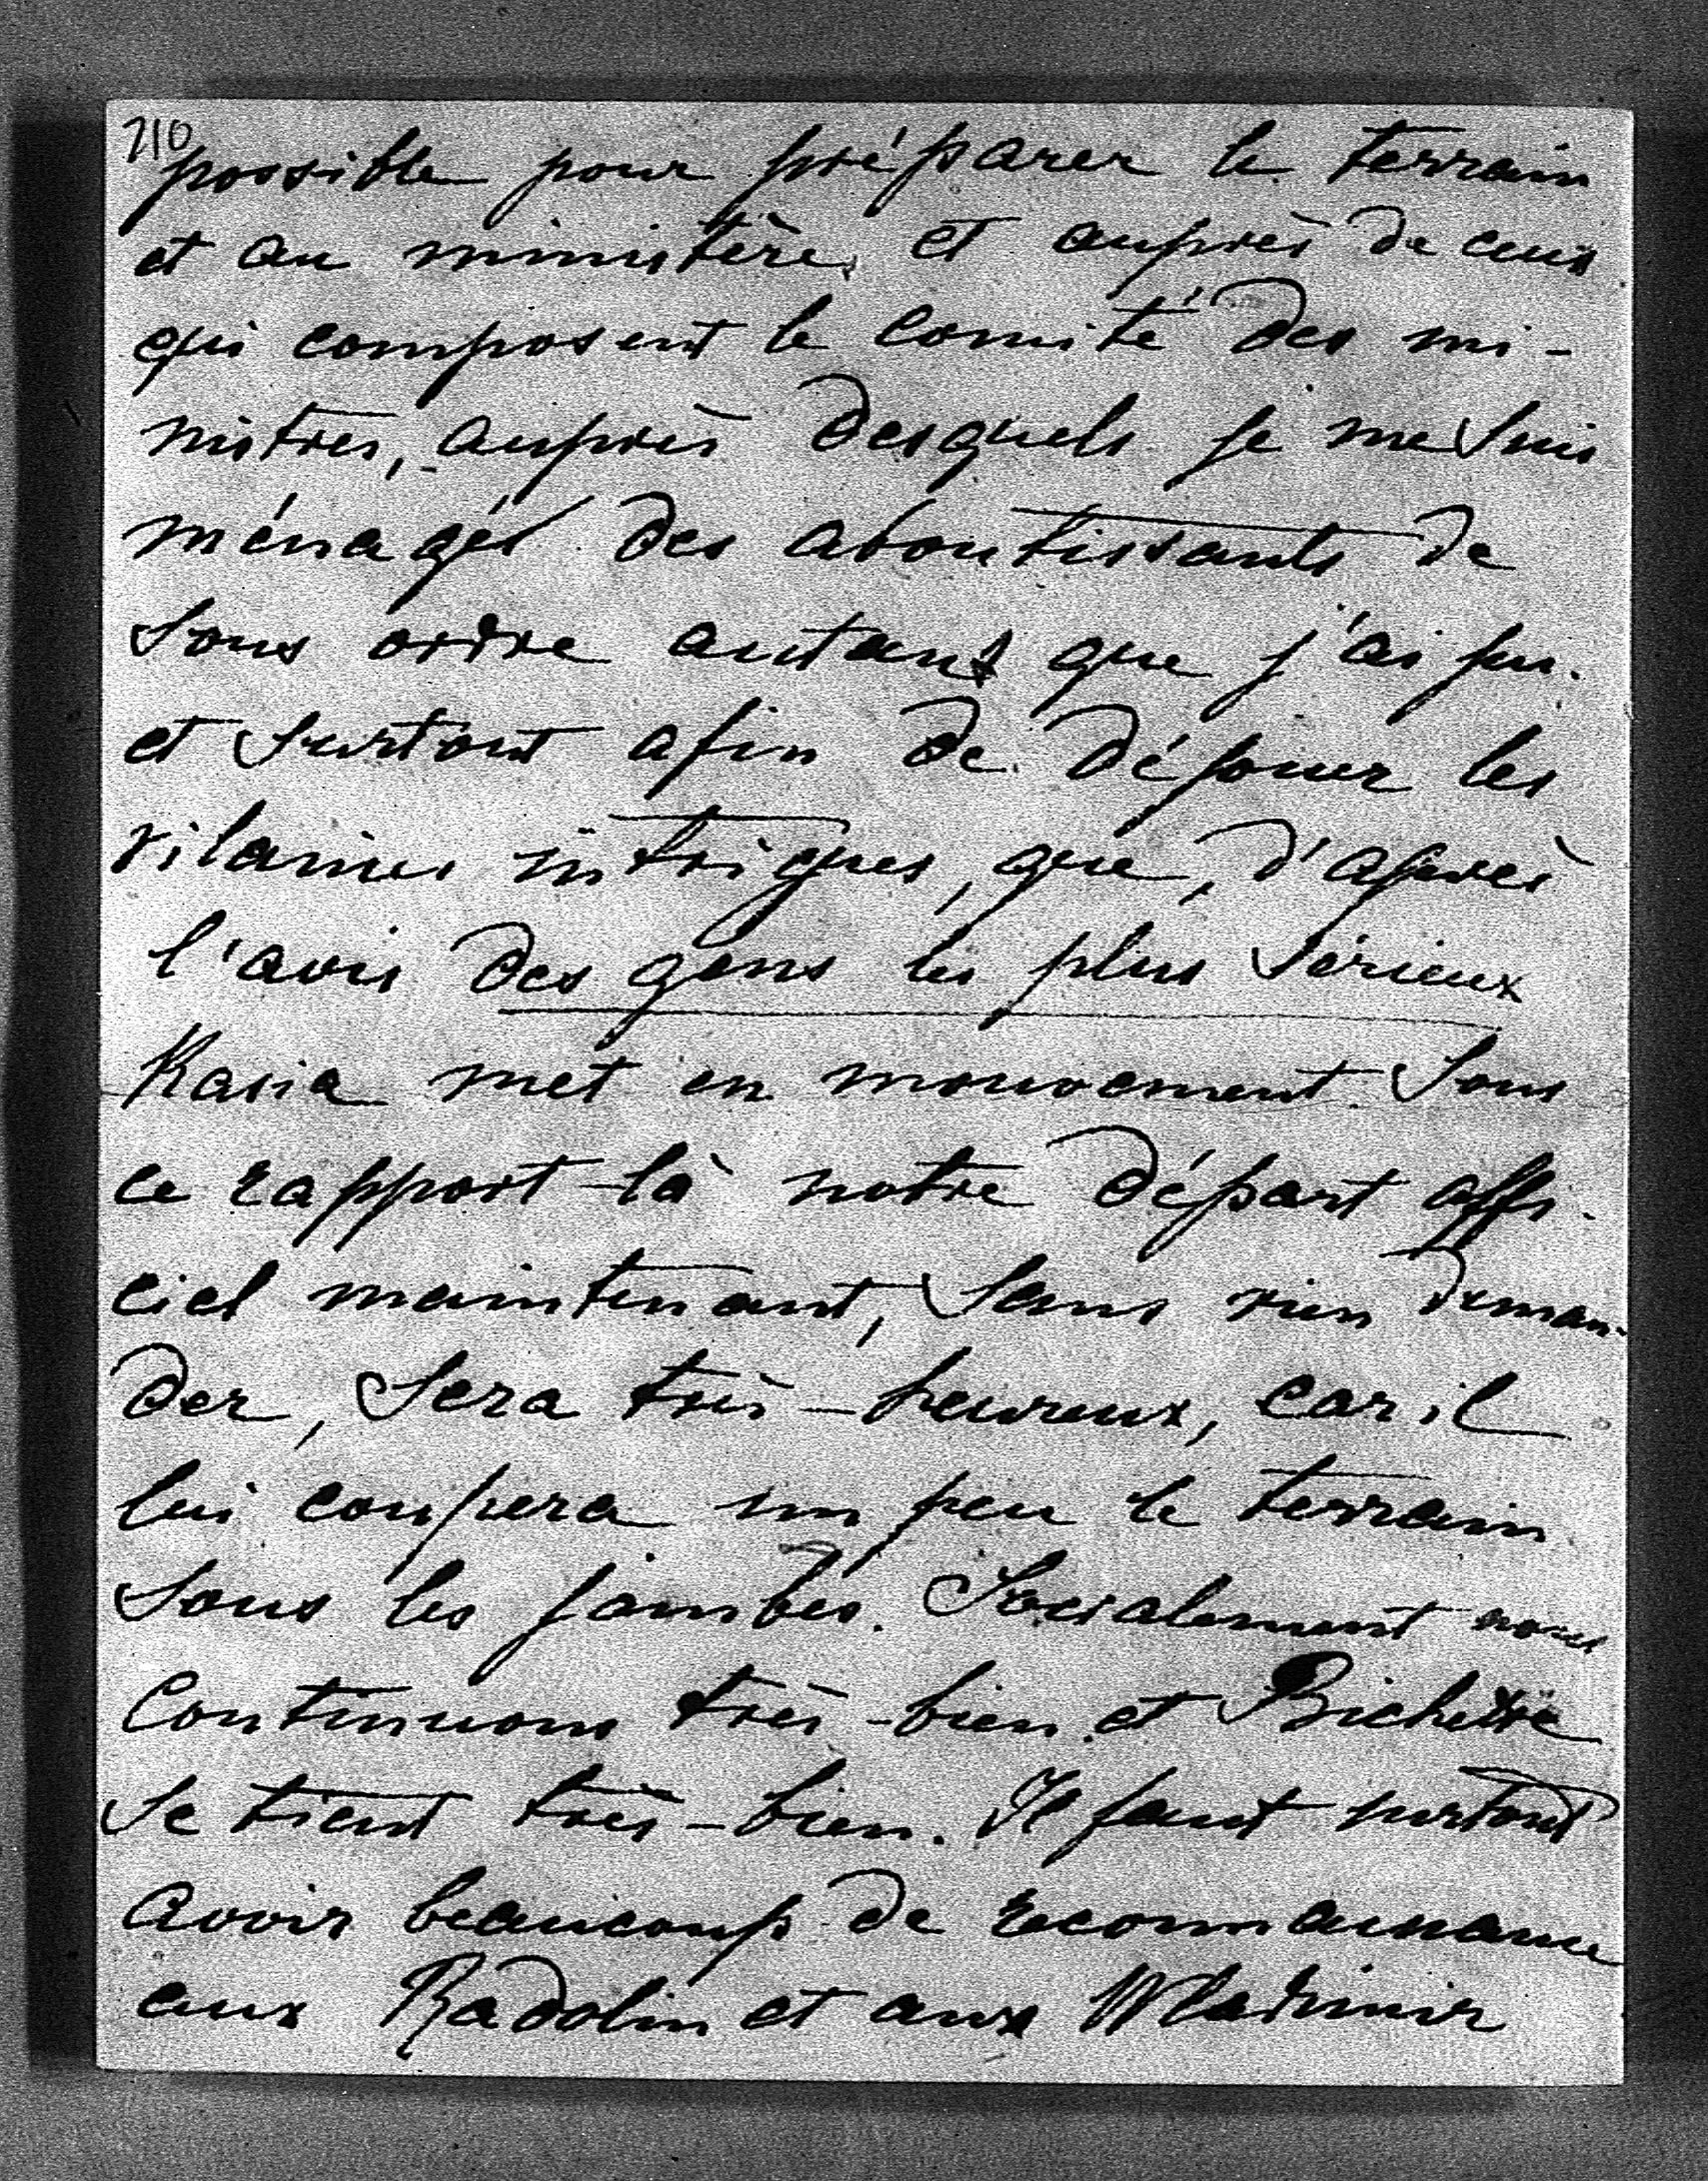 210
possible pour préparer le terrain
et au ministère, et auprès de ceux
qui composent le comité des mi-
nistres, auprès desquels je me suis
ménagés des aboutissants de
sous ordre autant que j'ai pu.
et surtout afin de déjouer les
vilaines intrigues, que, d'après
l'avis des gens les plus sérieux
Kasia met en mouvement. Sous
ce rapport-là notre départ offi-
ciel maintenant, sans rien deman-
der, sera très-heureux, car il
lui coupera un peu le terrain
sous les jambes. Socialement nous
continuons très-bien et Bichette
se tient très-bien. Il faut surtout
avoir beaucoup de reconnaissance
aux Radolin et aux Wladimir